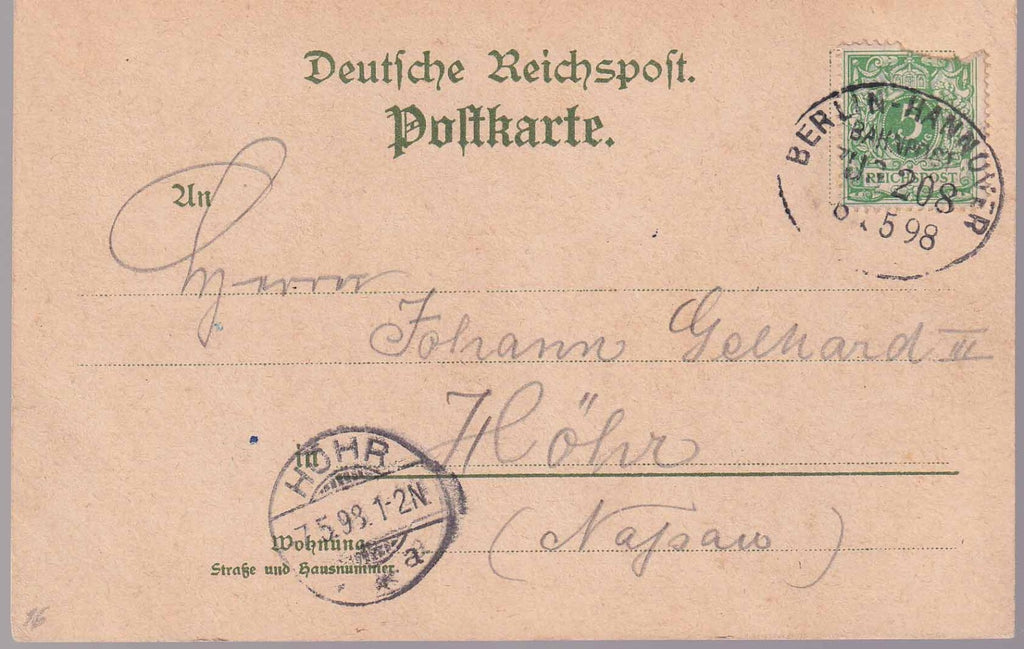 Deutsche Reichspost.
Postkarte.
5
REICHSPOST
BERLIN-HANNOVER
BAHNPOST
ZUG 208
6 5 98
An
Herrn
Johann Gelhard III
in Höhr
HÖHR
7.5.98. 1-2N.
* a
(Nassau)
Wohnung
Straße und Hausnummer.